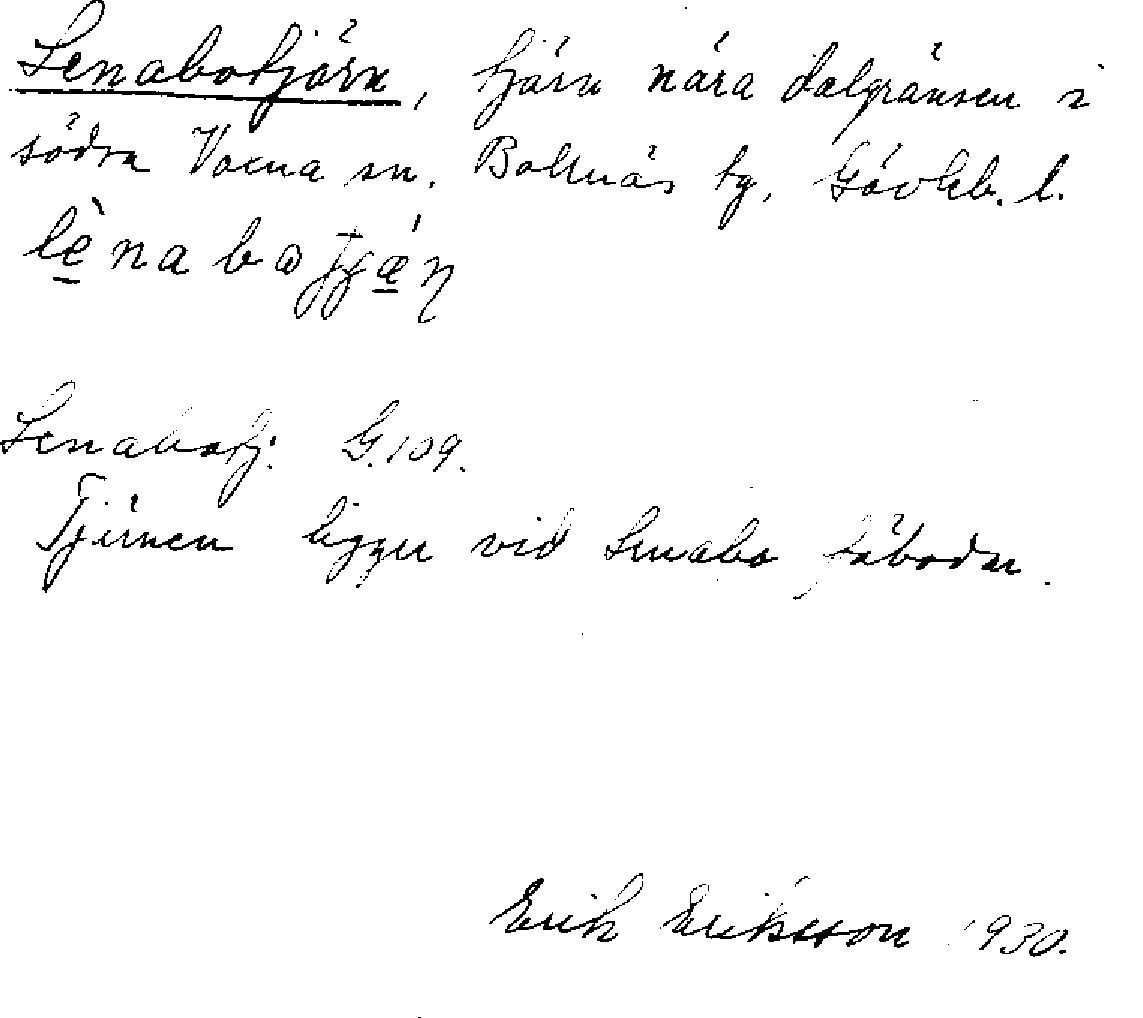 Lenabotjärn, tjärn nära dalgränsen i
södra Voxna sn. Bollnäs tg, Gävleb. l.
Lenabotj. G.109.
Tjärnen ligger vid Lenabo fäbodar.
Erik Eriksson 1930.